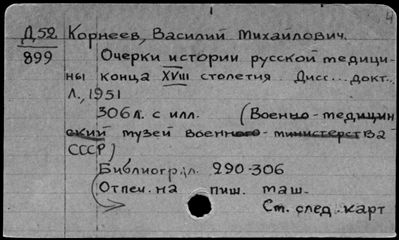 4
Д52 Корнеев, Василий Михайлович.
899
Очерки истории русской медици-
ны конца XVIII столетия. Дисс... докт.
Л., 1951
306 л. с илл. (Военно-медицин
ский музей военного министерства
СССР)
Библиогр.: л. 290-306
Отпеч. на пиш. маш.
См. след. карт